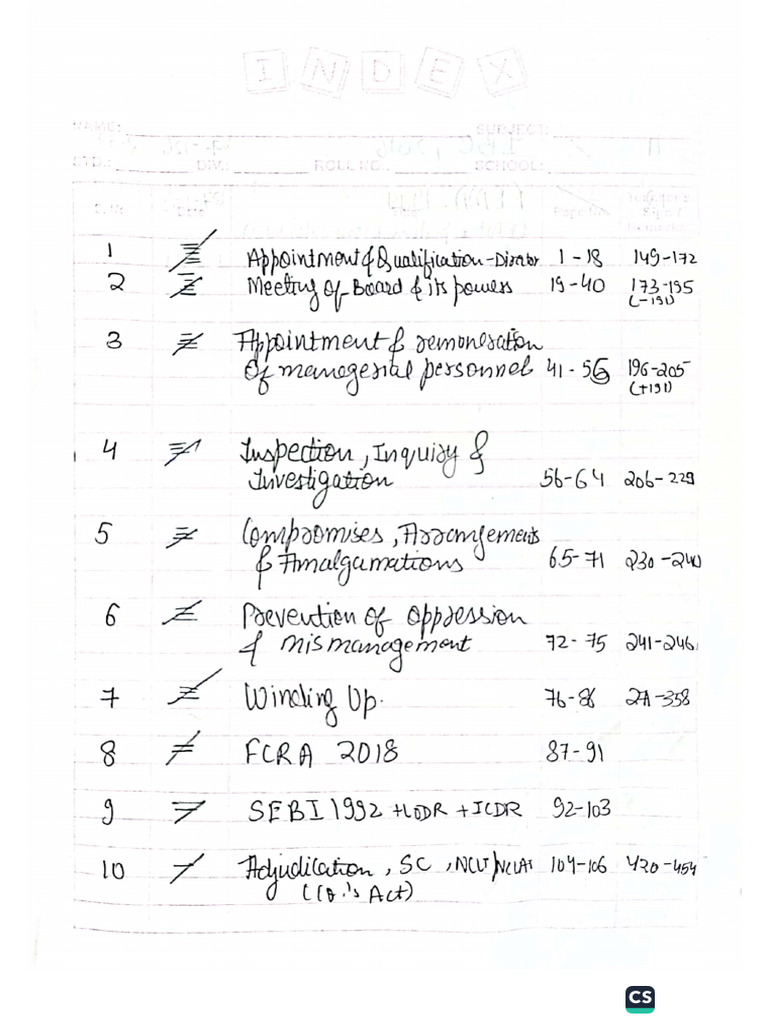 INDEX
NAME: SUBJECT:
STD.: DIV.: ROLL NO.: SCHOOL:
Date Page No.
1 Appointment & Qualification - Director 1-18 149-172
2 Meeting of Board & its powers 19-40 173-195
(-191)
3 Appointment & remoneration
Of managerial personnel 41-56 196-205
(+191)
4 Inspection, Inquiry &
Investigation 56-64 206-229
5 Compromises, Arrangements
& Amalgamations 65-71 230-240
6 Prevention of oppression
& mismanagement 72-75 241-246
7 Winding Up. 76-86 271-358
8 FCRA 2018 87-91
9 SEBI 1992 + LODR + ICDR 92-103
10 Adjudication, SC, NCLT/NCLAT 104-106 420-454
(Co.'s Act)
CS